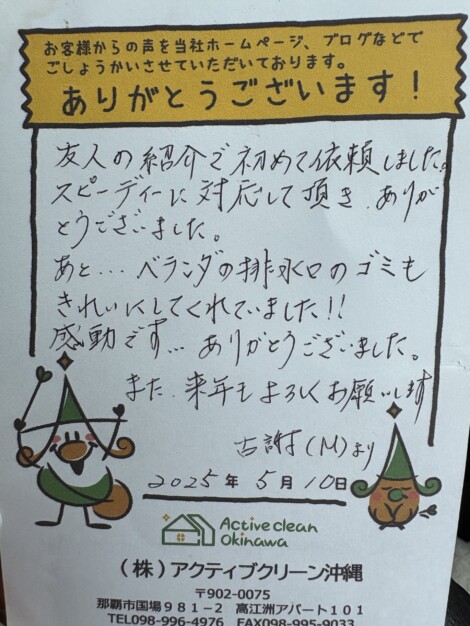 お客様からの声を当社ホームページ、ブログなどで
ごしょうかいさせていただいております。
ありがとうございます！
友人の紹介で初めて依頼しました。
スピーディーに対応して頂き、ありが
とうございました。
あと... ベランダの排水口のゴミも
きれいにしてくれていました!!
感動です... ありがとうございました。
また、来年もよろしくお願いします
古謝(M)より
2025年 5月 10日
Active clean
Okinawa
（株）アクティブクリーン沖縄
〒902-0075
那覇市国場981-2 高江洲アパート101
TEL098-996-4976 FAX098-995-9033